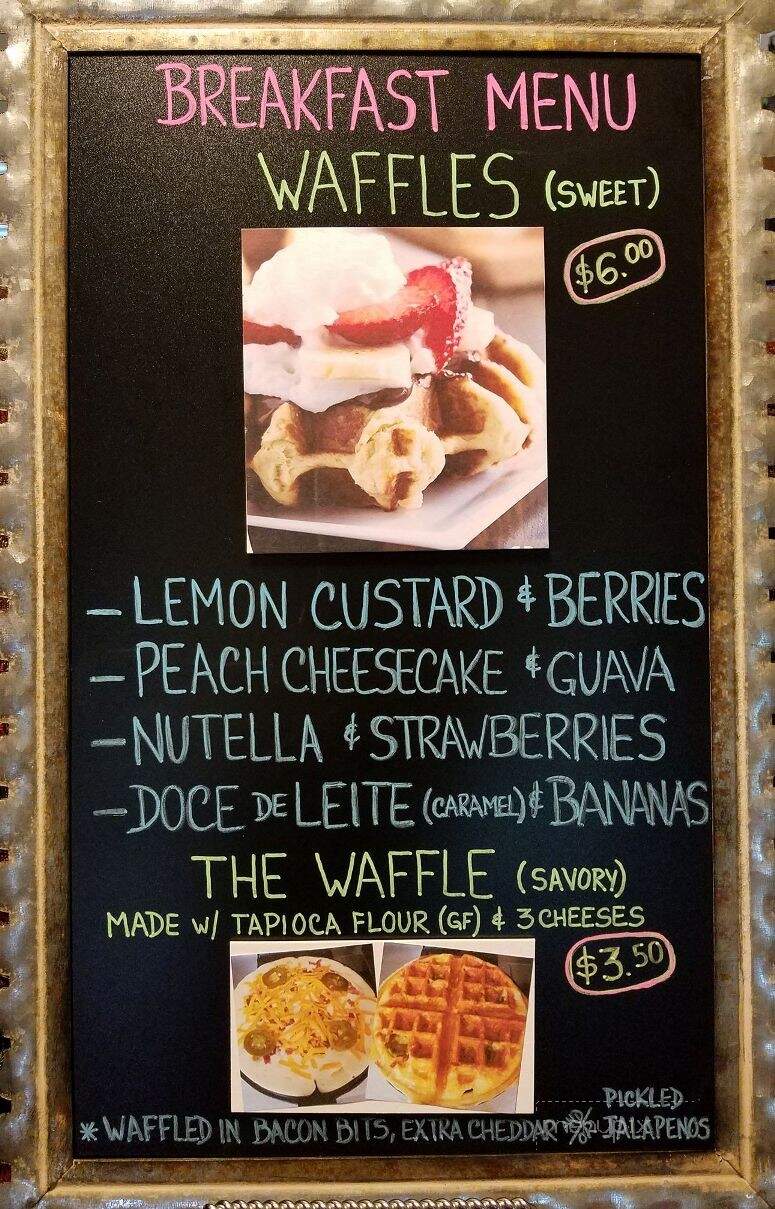 BREAKFAST MENU
WAFFLES (SWEET)
$6.00
- LEMON CUSTARD & BERRIES
- PEACH CHEESECAKE & GUAVA
- NUTELLA & STRAWBERRIES
- DOCE DE LEITE (CARAMEL) & BANANAS
THE WAFFLE (SAVORY)
MADE W/ TAPIOCA FLOUR (GF) & 3 CHEESES
$3.50
PICKLED
* WAFFLED IN BACON BITS, EXTRA CHEDDAR JALAPENOS